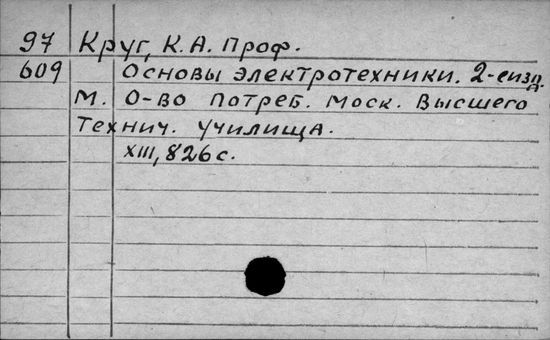 97 Круг, К. А. Проф.
609 Основы электротехники. 2-е изд.
М. О-во Потреб. Моск. Высшего
Технич. училища.
XIII, 826 с.